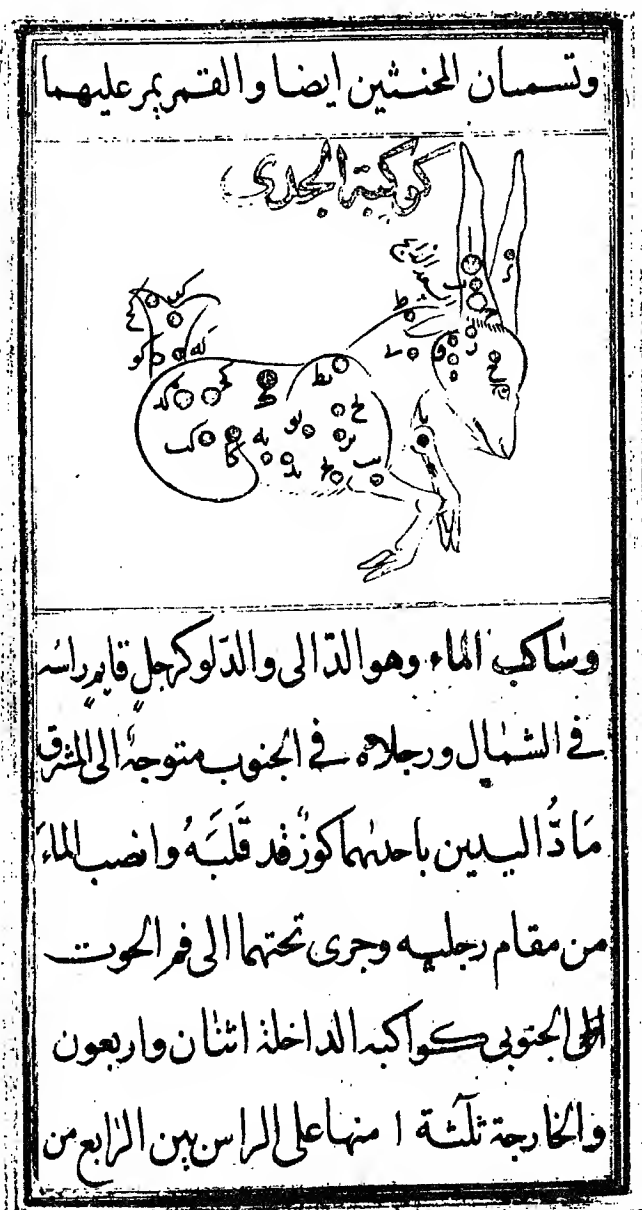 وتسميان المحنثين ايضا والقمر يمر عليهما
كوكبة الجدى
سعد الذابح
وساكب الماء وهو الدالى والدلو كرجلٍ قايمٍ راسه
فى الشمال ورجلاه فى الجنوب متوجهٌ الى المشرق
مَادُّ اليدين باحديهما كوزٌ قد قَلَبَهُ وانصب الماءَ
من مقام رجليه وجرى تحتهما الى فم الحوت
الجنوبى كواكبه الداخلة اثنان واربعون
والخارجة ثلثة ا منها على الراس بين الرابع من